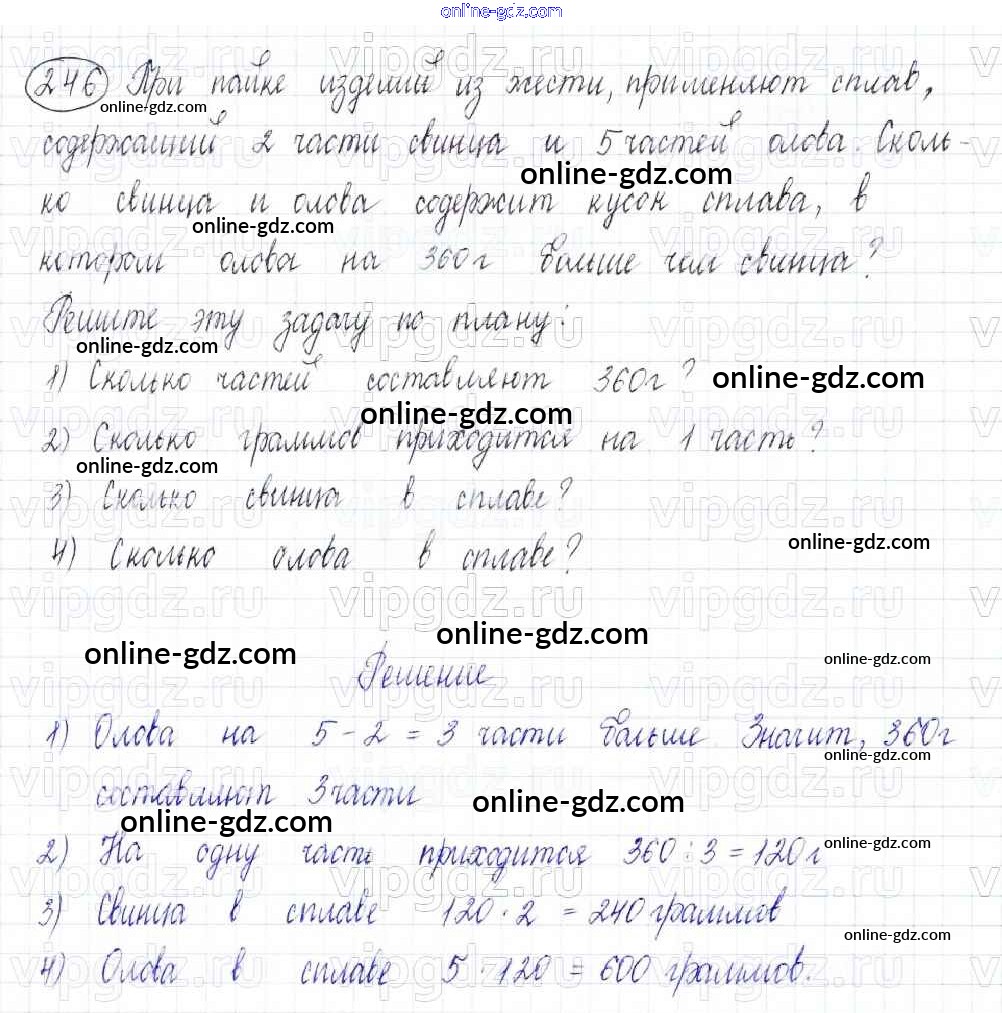 online-gdz.com
246 При пайке изделий из жести, применяют сплав,
online-gdz.com
содержащий 2 части свинца и 5 частей олова. Сколь-
online-gdz.com
ко свинца и олова содержит кусок сплава, в
online-gdz.com
котором олова на 360 г больше чем свинца?
Решите эту задачу по плану:
online-gdz.com
1) Сколько частей составляют 360 г?
online-gdz.com
online-gdz.com
2) Сколько граммов приходится на 1 часть?
online-gdz.com
3) Сколько свинца в сплаве?
4) Сколько олова в сплаве?
online-gdz.com
online-gdz.com
online-gdz.com
online-gdz.com
Решение
1) Олова на 5 - 2 = 3 части больше. Значит, 360 г
составляют 3 части
online-gdz.com
online-gdz.com
2) На одну часть приходится 360 : 3 = 120 г
online-gdz.com
3) Свинца в сплаве 120 · 2 = 240 граммов
online-gdz.com
4) Олова в сплаве 5 · 120 = 600 граммов.
online-gdz.com
online-gdz.com
online-gdz.com